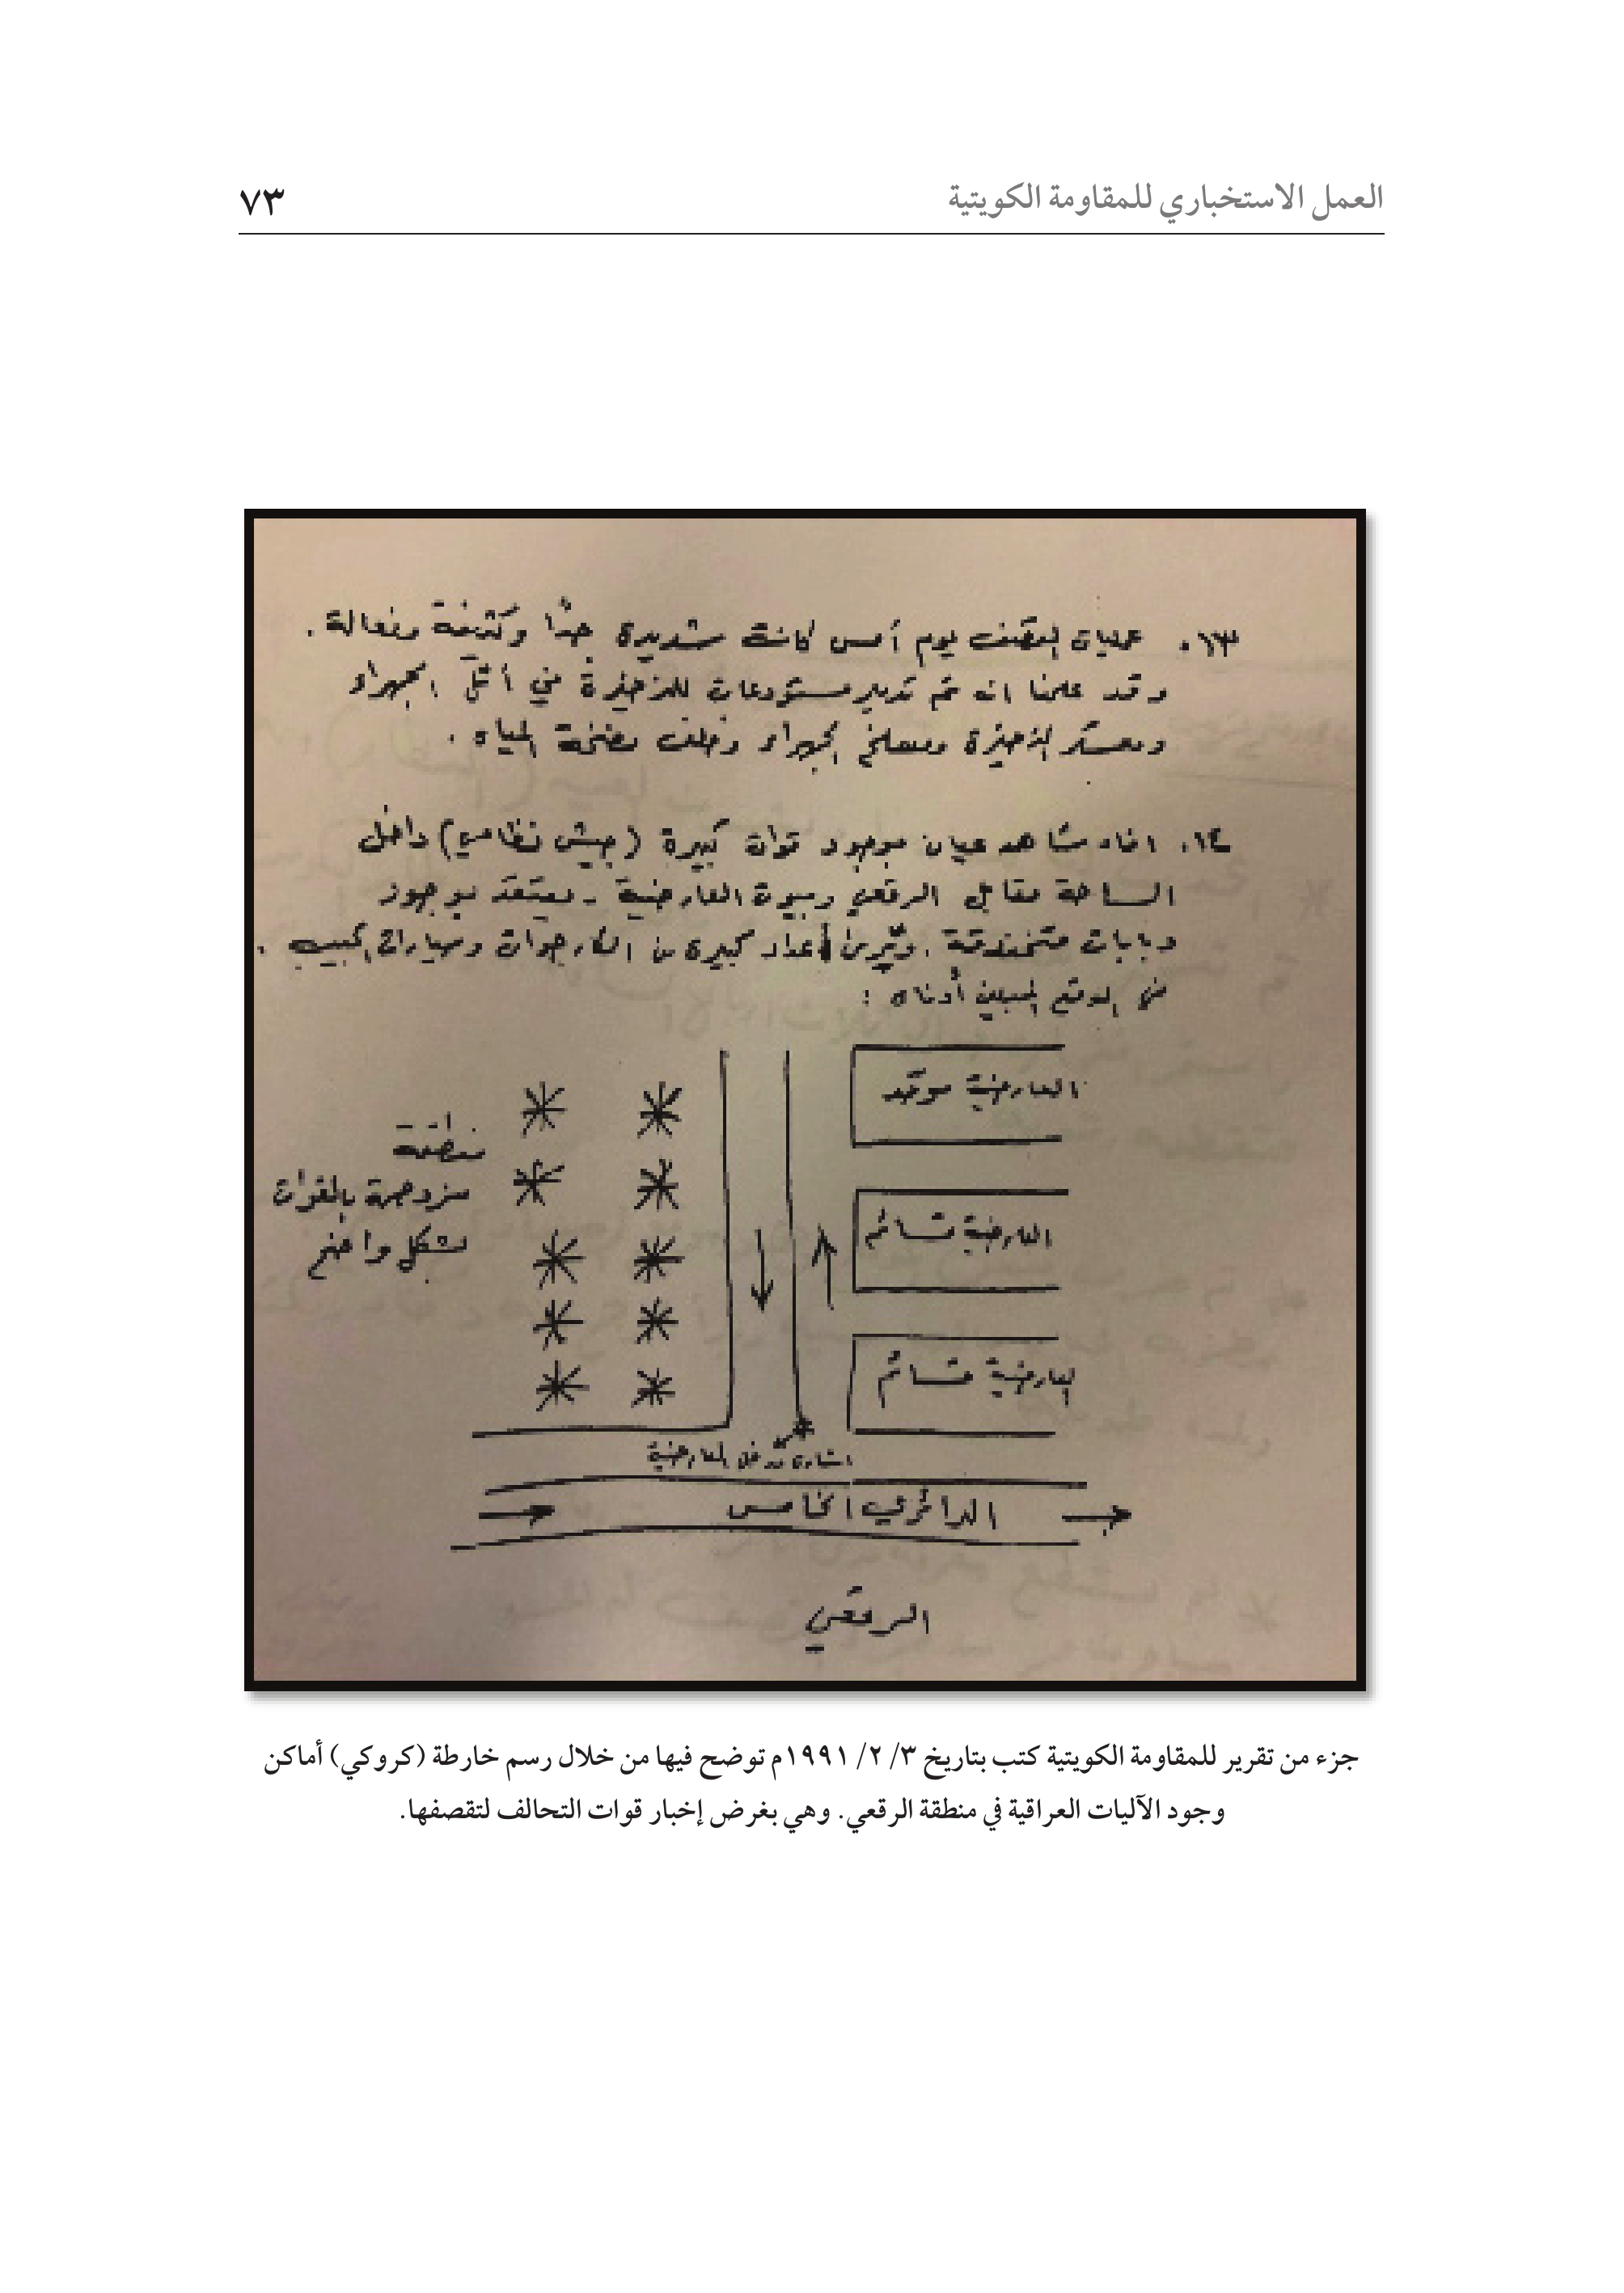 العمل الاستخباري للمقاومة الكويتية
٧٣
١٣. عمليات القصف يوم أمس كانت شديدة جداً وكثيفة وفعالة.
وقد علمنا انه تم تدمير مستودعات للذخيرة في أثل الجهراء
ومعسكر الذخيرة ومسلخ الجهراء وخلف مضخة المياه.
١٤. افاد شاهد عيان بوجود قوات كبيرة (جيش نظامي) داخل
الساحة مقابل الرقعي وبيوت العارضية - ويعتقد بوجود
دبابات متخندقة. أعداد كبيرة من وسيارات الجيب.
في الموقع المبين أدناه:
العارضية
منطقة
مزدحمة بالقوات
بشكل واضح
العارضية قسائم
العارضية قسائم
اشارة مدخل العارضية
الدائري الخامس
الرقعي
جزء من تقرير للمقاومة الكويتية كتب بتاريخ ٣/ ٢/ ١٩٩١م توضح فيها من خلال رسم خارطة (كروكي) أماكن
وجود الآليات العراقية في منطقة الرقعي. وهي بغرض إخبار قوات التحالف لتقصفها.